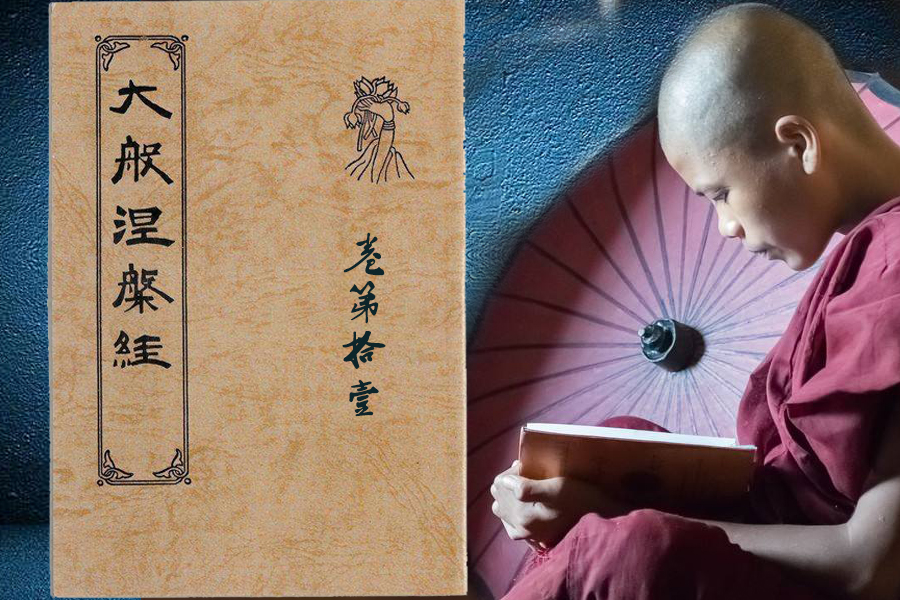 大般涅槃経
卷第拾壹